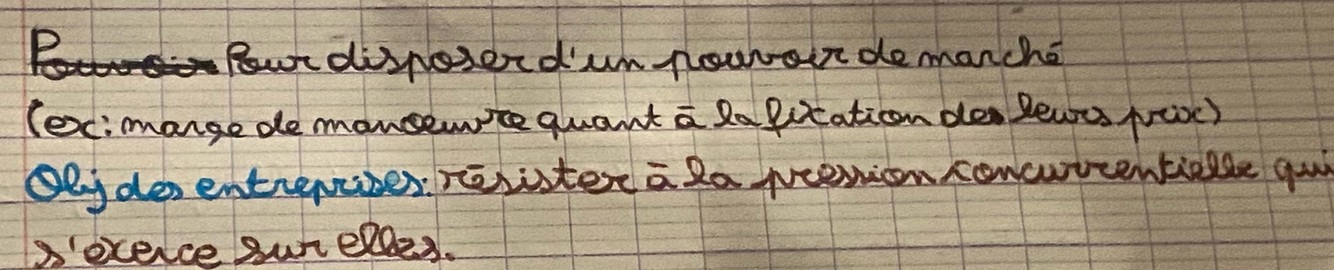 Pouvoir Pour disposer d'un pouvoir de marché
(ex: marge de manoeuvre quant à la fixation des leurs prix)
Obj des entreprises: résister à la pression concurrentielle qui
s'exerce sur elles.